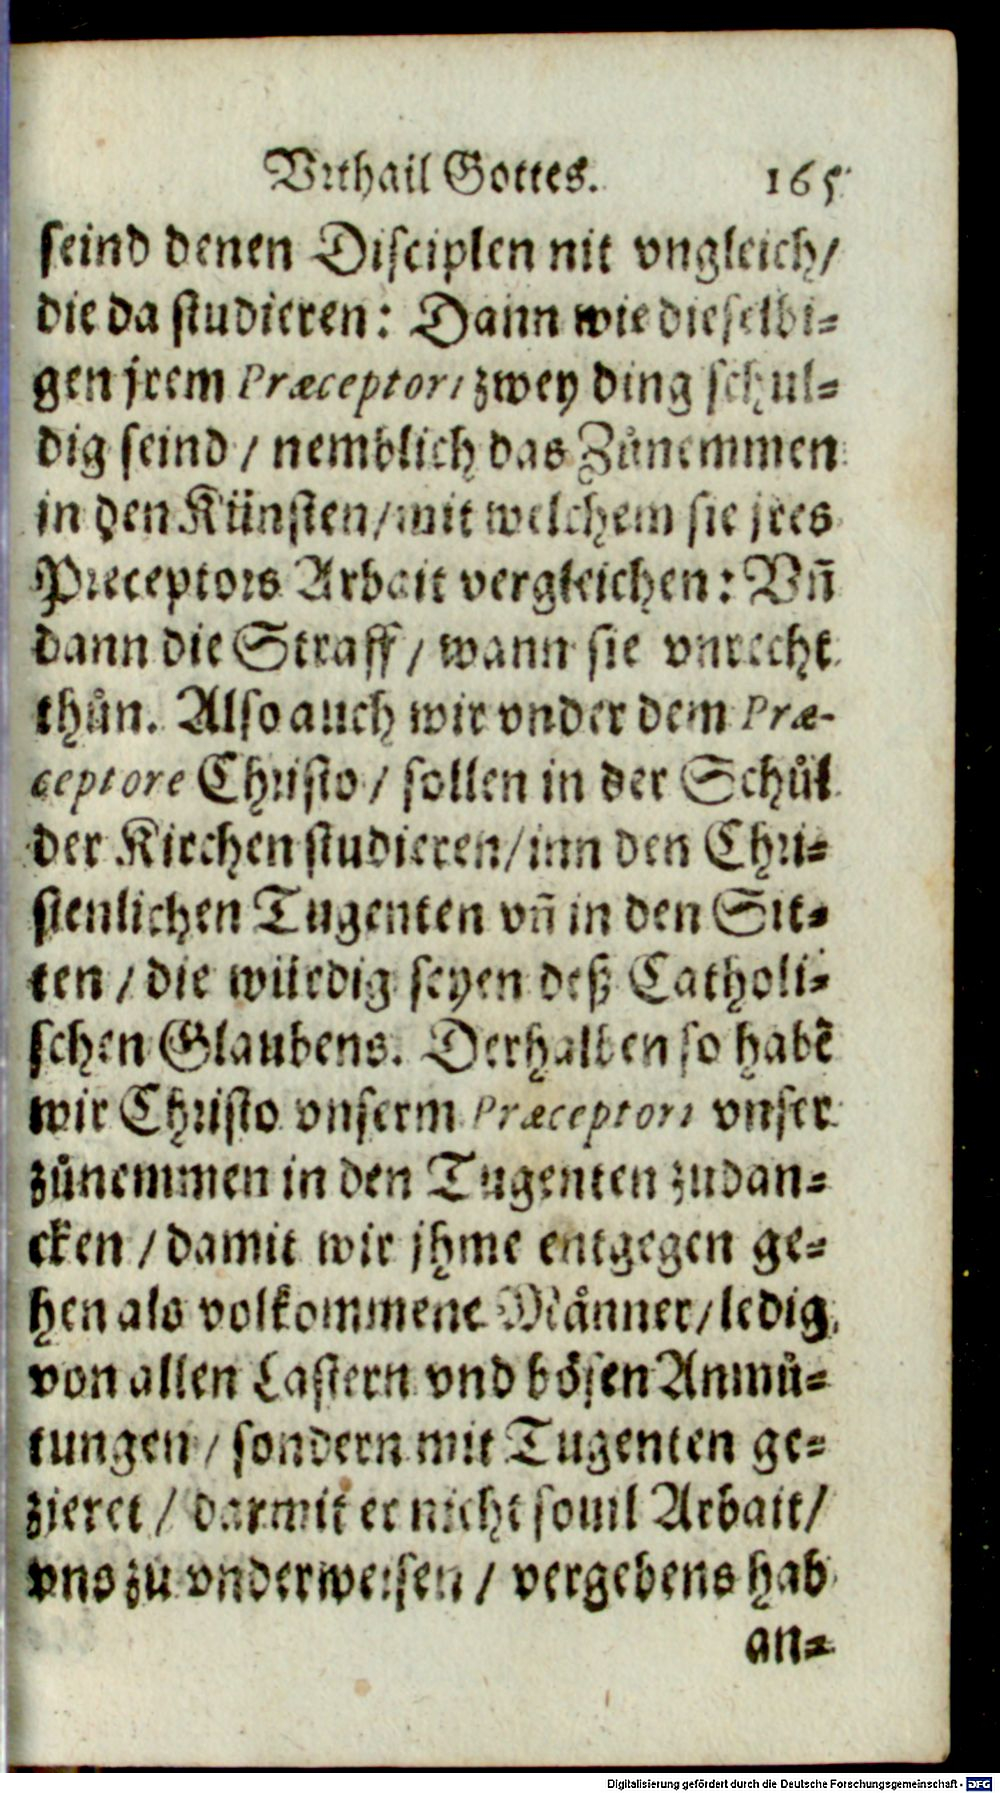 Vrthail Gottes. 165
seind denen Disciplen nit vngleich/
die da studieren: Dann wie dieselbi=
gen jrem Præceptori zwey ding schul=
dig seind / nemblich das Zůnemmen
in den Künsten/mit welchem sie jres
Preceptors Arbait vergleichen: Vñ
dann die Straff / wann sie vnrecht
thůn. Also auch wir vnder dem Præ-
ceptore Christo / sollen in der Schůl
der Kirchen studieren/inn den Chri=
stenlichen Tugenten vñ in den Sit=
ten / die wiirdig seyen deß Catholi=
schen Glaubens. Derhalben so habẽ
wir Christo vnserm Præceptori vnser
zůnemmen in den Tugenten zudan=
cken / damit wir jhme entgegen ge=
hen als volkommene Maͤnner/ledig
von allen Lastern vnd boͤsen Anmů=
tungen / sondern mit Tugenten ge=
zieret / darmit er nicht souil Arbait/
vns zu vnderweisen / vergebens hab
an=
Digitalisierung gefördert durch die Deutsche Forschungsgemeinschaft - DFG